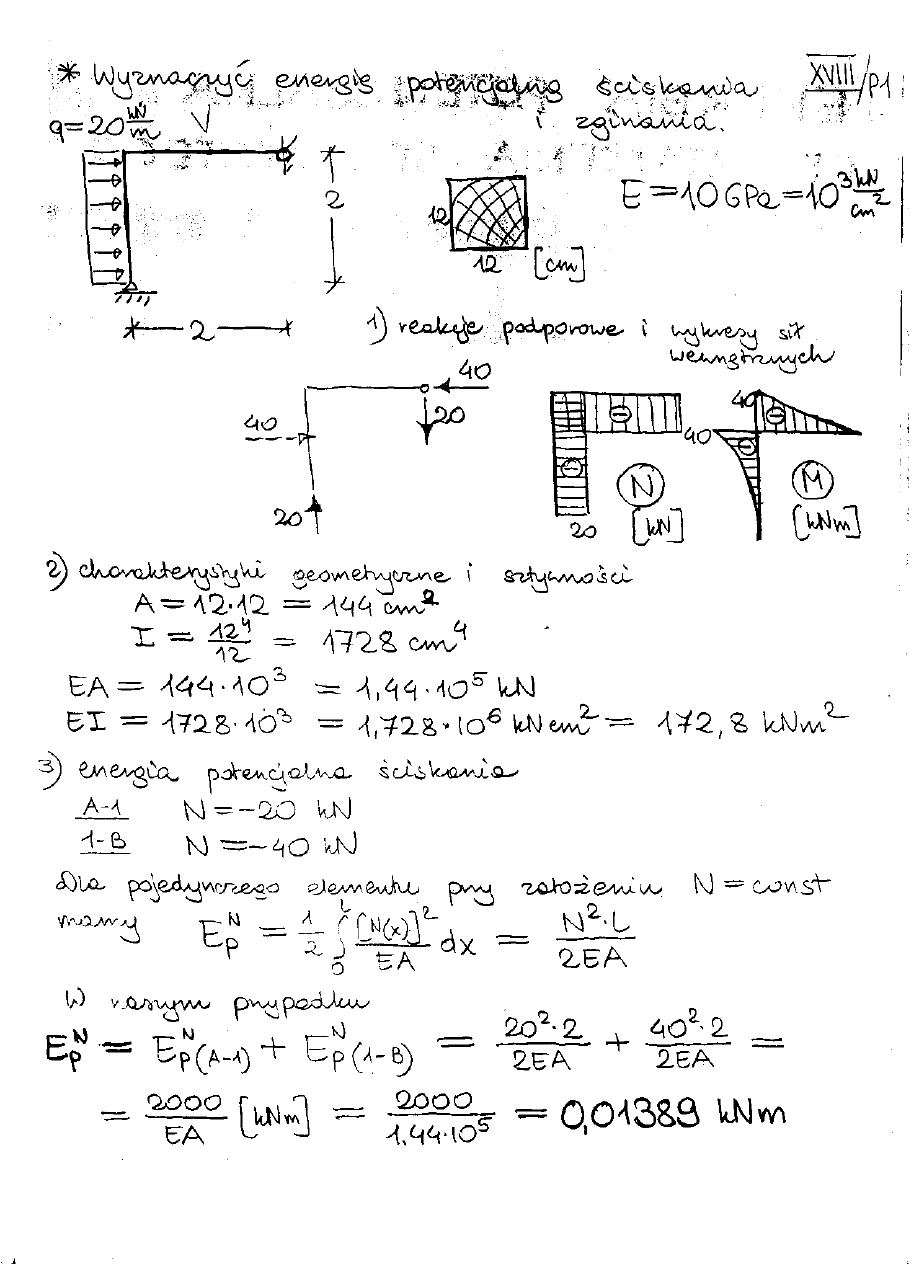 * Wyznaczyć energię potencjalną ściskania XVIII/P1
i zginania.
q=20 kN/m
2
12
12 [cm]
E = 10 GPa = 10³ kN/cm²
2
1) reakcje podporowe i wykresy sił
wewnętrznych
40
20
40
20
40
20
N
[kN]
40
M
[kNm]
2) charakterystyki geometryczne i sztywności
A = 12·12 = 144 cm²
I = 12⁴/12 = 1728 cm⁴
EA = 144·10³ = 1,44·10⁵ kN
EI = 1728·10³ = 1,728·10⁶ kNcm² = 172,8 kNm²
3) energia potencjalna ściskania
A-1 N = -20 kN
1-B N = -40 kN
Dla pojedynczego elementu przy założeniu N = const
mamy E_p^N = 1/2 ∫₀^L [N(x)]²/EA dx = N²·L/2EA
W naszym przypadku
E_p^N = E_p(A-1)^N + E_p(1-B)^N = 20²·2/2EA + 40²·2/2EA =
= 2000/EA [kNm] = 2000/1,44·10⁵ = 0,01389 kNm